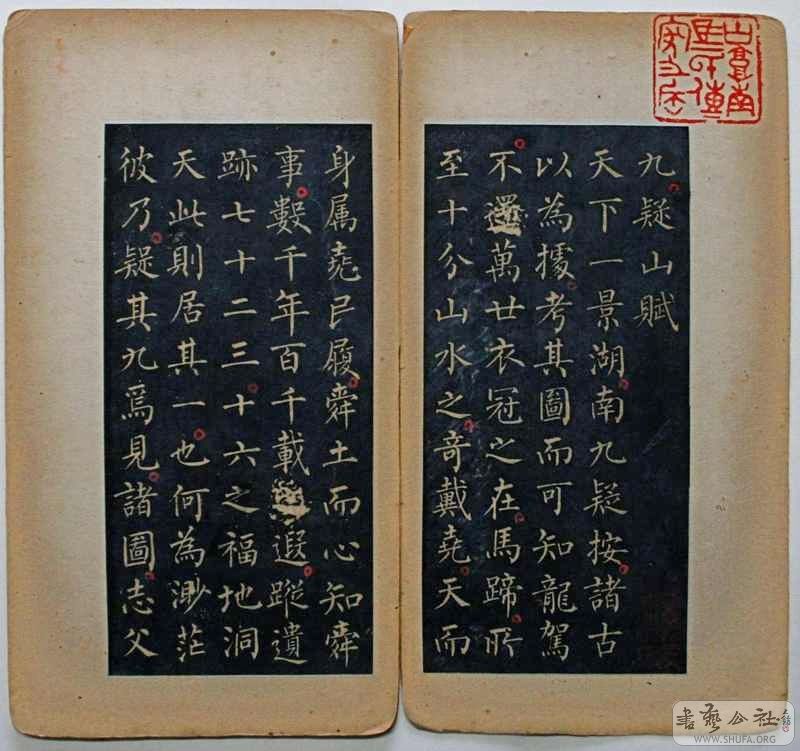 九疑山賦
天下一景湖南九疑按諸古
以為據考其圖而可知龍駕
不還萬世衣冠之在馬蹄所
至十分山水之奇戴堯天而
身属尭民履舜土而心知舜
事數千年百千載遐蹤遺
跡七十二三十六之福地洞
天此則居其一也何為渺茫
彼乃疑其九焉見諸圖志父
書藝公社
WWW.SHUFA.ORG